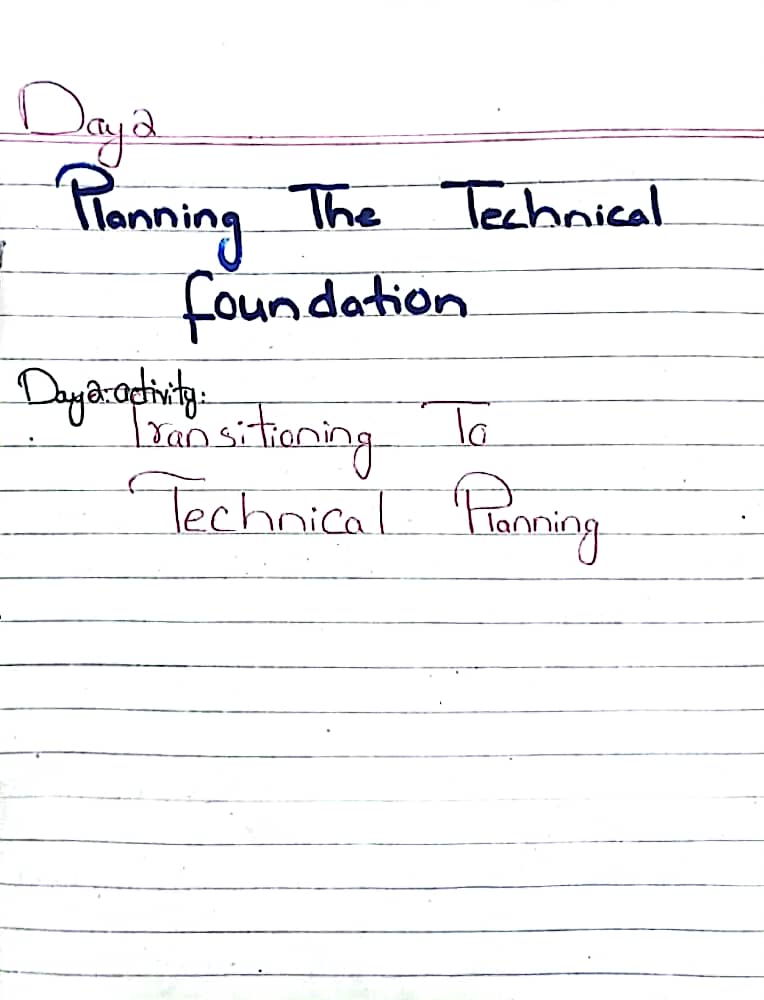 Day 2
Planning The Technical
foundation
Day 2: activity:
Transitioning To
Technical Planning